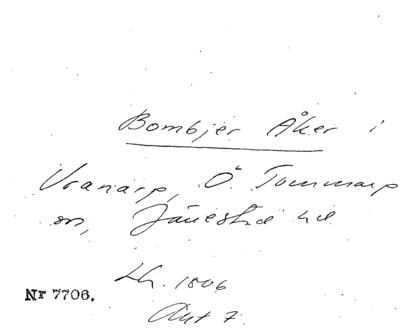 Bombjer Åker i
Vranarp, Ö. Tommarp
sn, Järrestad hd
Lh. 1806
Akt 7
Nr 7706.